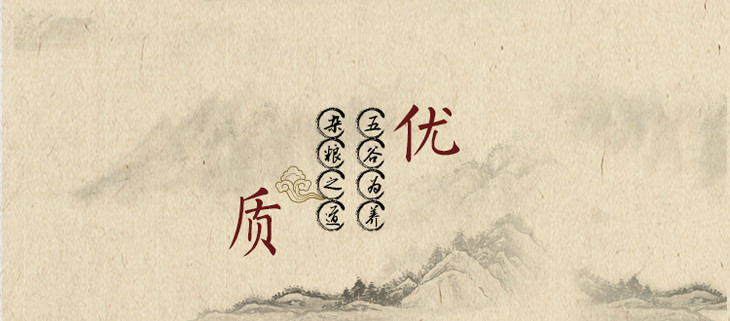 优
五谷为养
杂粮之道
质